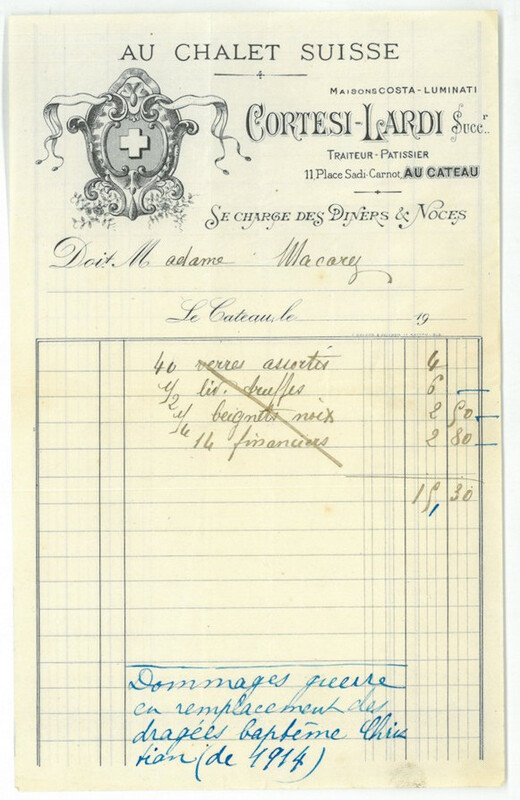 AU CHALET SUISSE
MAISONS COSTA-LUMINATI
CORTESI-LARDI Succr.
TRAITEUR-PATISSIER
11, Place Sadi-Carnot, AU CATEAU
SE CHARGE DES DINERS & NOCES
Doit M adame Macarez
Le Cateau, le 19
40 verres assortis 4
1/2 liv. truffes 6
1/4 beignets noix 2 50
14 financiers 2 80
15 30
Dommages guerre
en remplacement des
dragées baptême Chris
tian (de 1914)